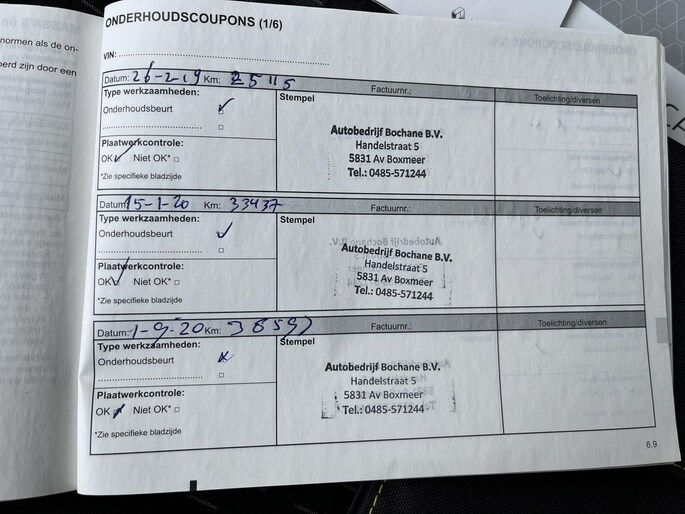 normen als de on-
erd zijn door een
ONDERHOUDSCOUPONS (1/6)
VIN:
Datum: 26-2-19 Km: 25115
Factuurnr.:
Toelichting/diversen
Type werkzaamheden:
Onderhoudsbeurt
Plaatwerkcontrole:
OK Niet OK*
*Zie specifieke bladzijde
Stempel
Autobedrijf Bochane B.V.
Handelstraat 5
5831 Av Boxmeer
Tel.: 0485-571244
Datum: 15-1-20 Km: 33437
Factuurnr.:
Toelichting/diversen
Type werkzaamheden:
Onderhoudsbeurt
Plaatwerkcontrole:
OK Niet OK*
*Zie specifieke bladzijde
Stempel
Autobedrijf Bochane B.V.
Handelstraat 5
5831 Av Boxmeer
Tel.: 0485-571244
Datum: 1-9-20 Km:
Factuurnr.:
Toelichting/diversen
Type werkzaamheden:
Onderhoudsbeurt
Plaatwerkcontrole:
OK Niet OK*
*Zie specifieke bladzijde
Stempel
Autobedrijf Bochane B.V.
Handelstraat 5
5831 Av Boxmeer
Tel.: 0485-571244
6.9